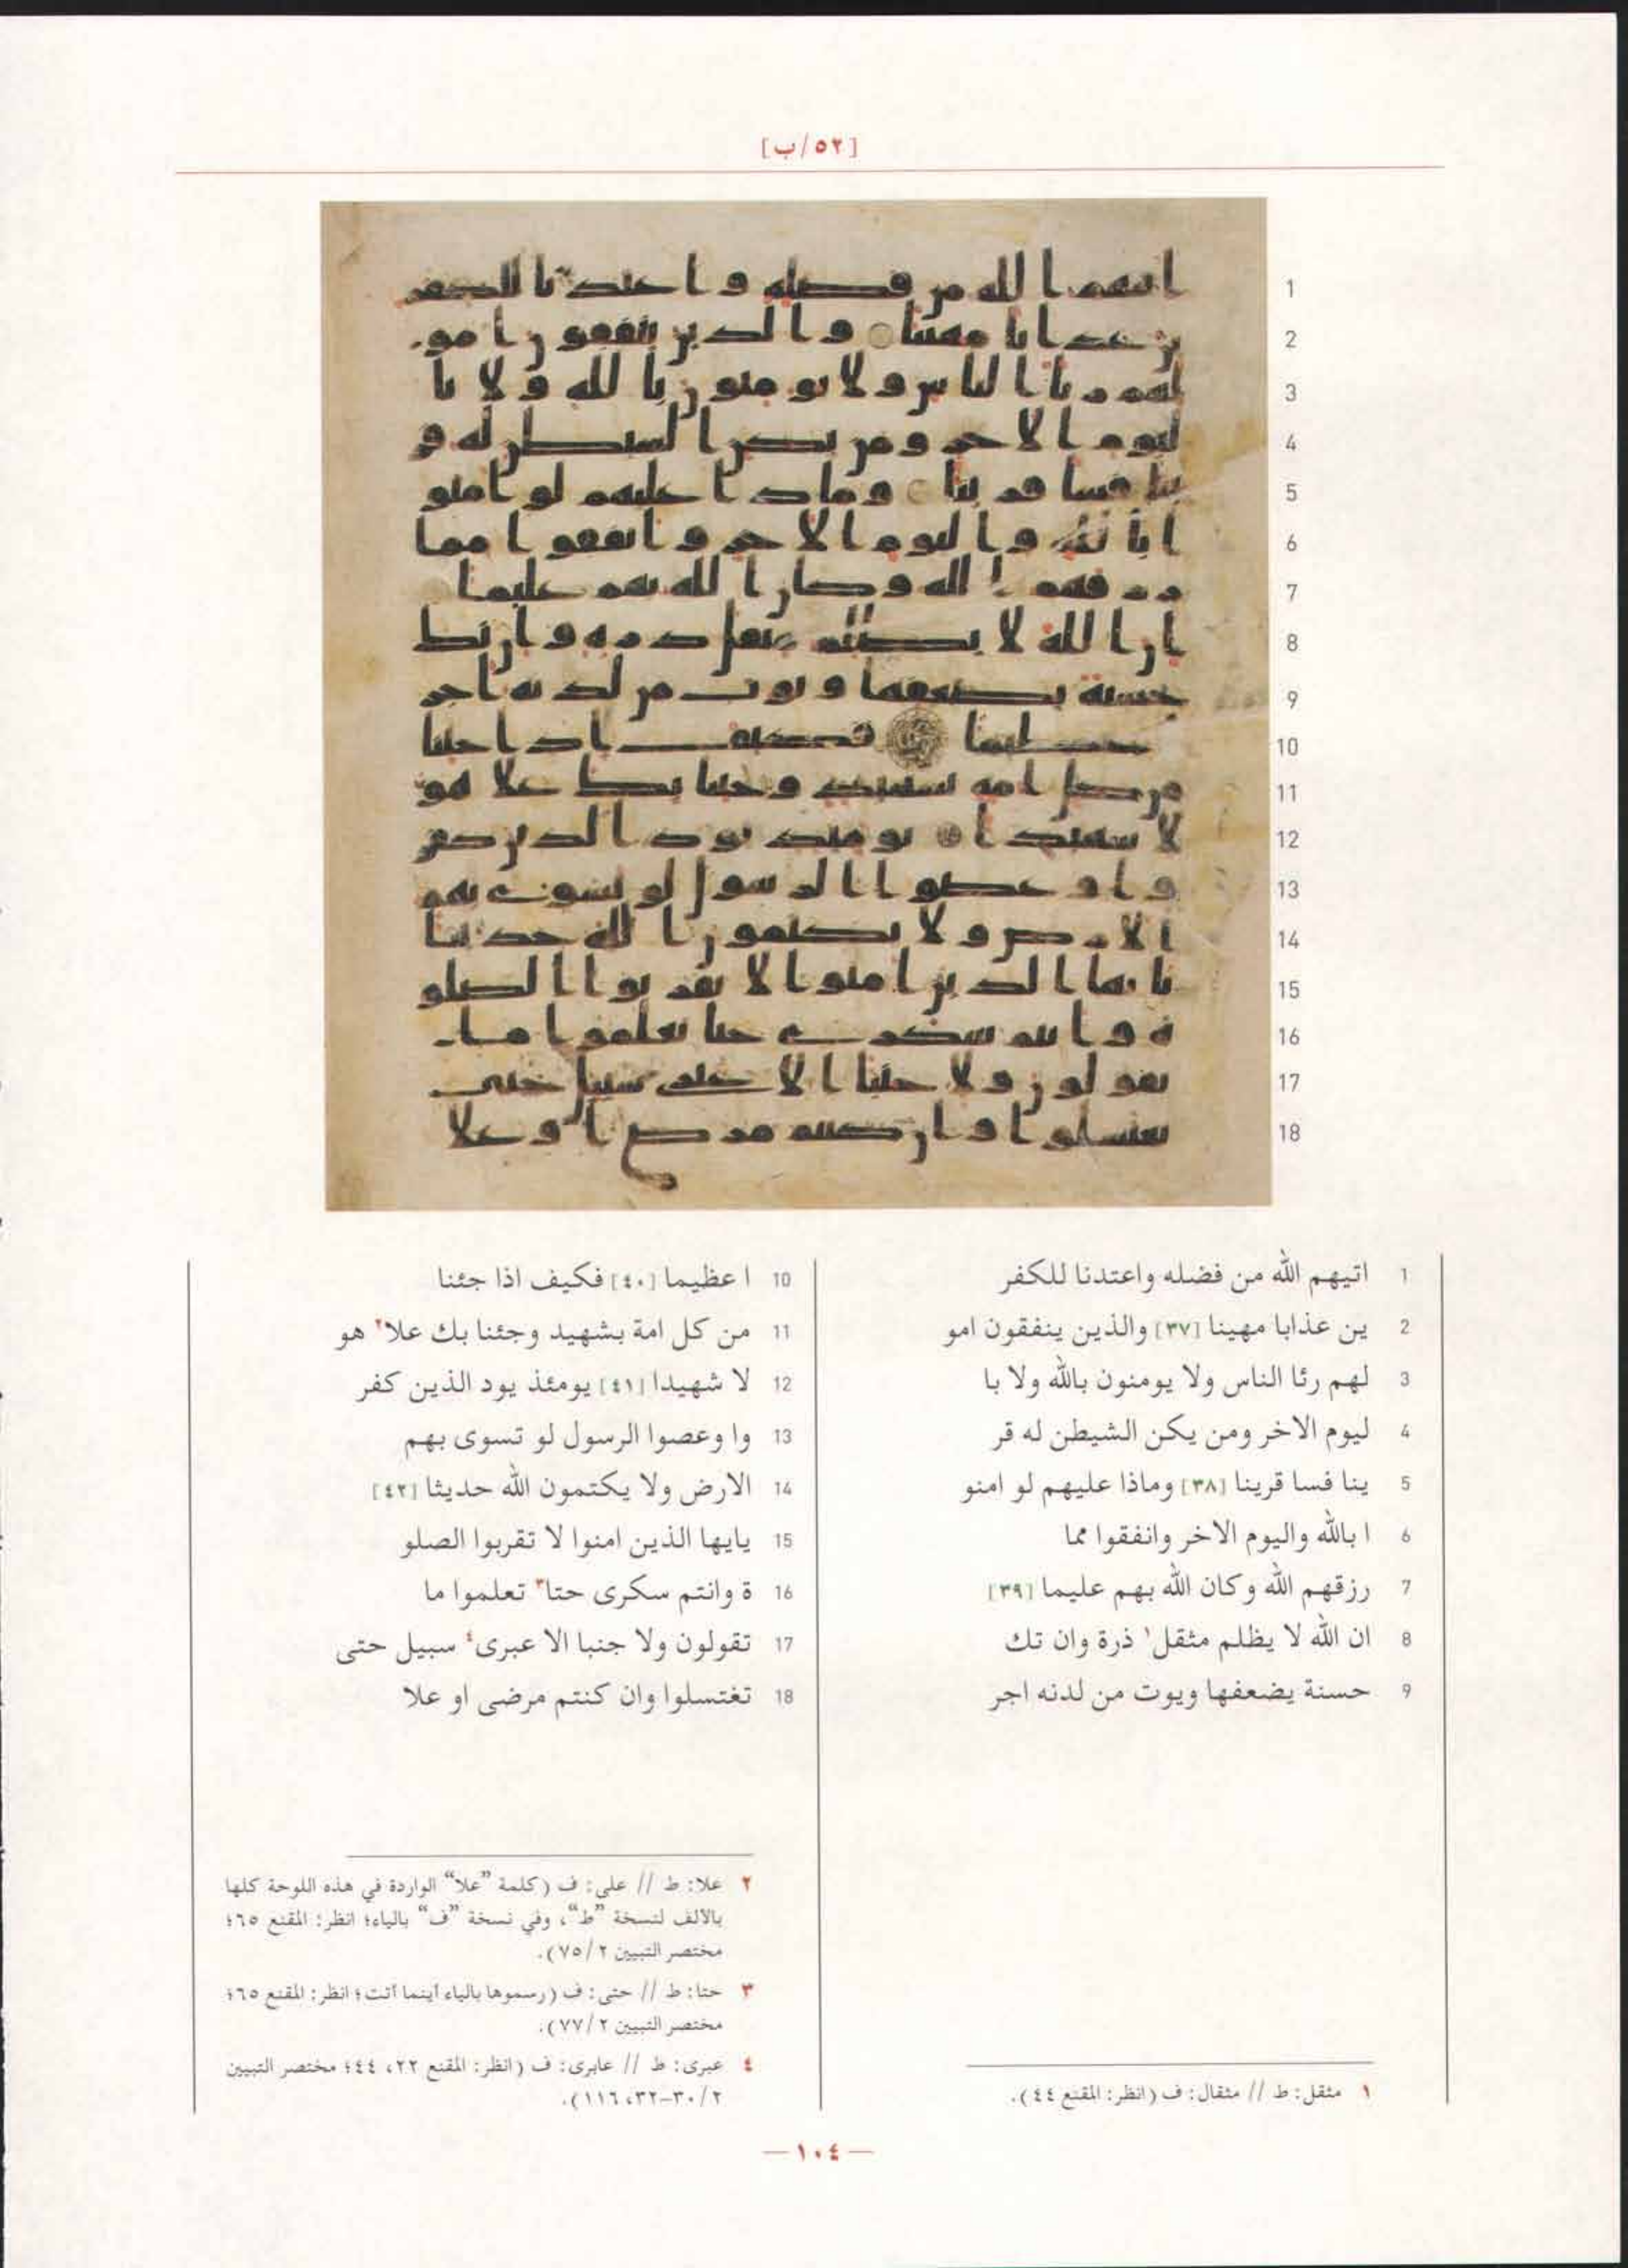 [٥٢/ب]
1 اتيهم الله من فضله واعتدنا للكفر
2 ين عذابا مهينا [٣٧] والذين ينفقون امو
3 لهم رئا الناس ولا يومنون بالله ولا با
4 ليوم الاخر ومن يكن الشيطن له قر
5 ينا فسا قرينا [٣٨] وماذا عليهم لو امنو
6 ا بالله واليوم الاخر وانفقوا مما
7 رزقهم الله وكان الله بهم عليما [٣٩]
8 ان الله لا يظلم مثقل١ ذرة وان تك
9 حسنة يضعفها ويوت من لدنه اجر
١ مثقل: ط // مثقال: ف (انظر: المقنع ٤٤).
10 ا عظيما [٤٠] فكيف اذا جئنا
11 من كل امة بشهيد وجئنا بك علا٢ هو
12 لا شهيدا [٤١] يومئذ يود الذين كفر
13 وا وعصوا الرسول لو تسوى بهم
14 الارض ولا يكتمون الله حديثا [٤٢]
15 يايها الذين امنوا لا تقربوا الصلو
16 ة وانتم سكرى حتا٣ تعلموا ما
17 تقولون ولا جنبا الا عبرى٤ سبيل حتى
18 تغتسلوا وان كنتم مرضى او علا
٢ علا: ط // على: ف (كلمة ”علا“ الواردة في هذه اللوحة كلها
بالألف لنسخة ”ط“، وفي نسخة ”ف“ بالياء؛ انظر: المقنع ٦٥؛
مختصر التبيين ٧٥/٢).
٣ حتا: ط // حتى: ف (رسموها بالياء أينما أتت؛ انظر: المقنع ٦٥؛
مختصر التبيين ٧٧/٢).
٤ عبرى: ط // عابرى: ف (انظر: المقنع ٢٢، ٤٤؛ مختصر التبيين
٣٠/٢-٣٢، ١١٦).
— ١٠٤ —